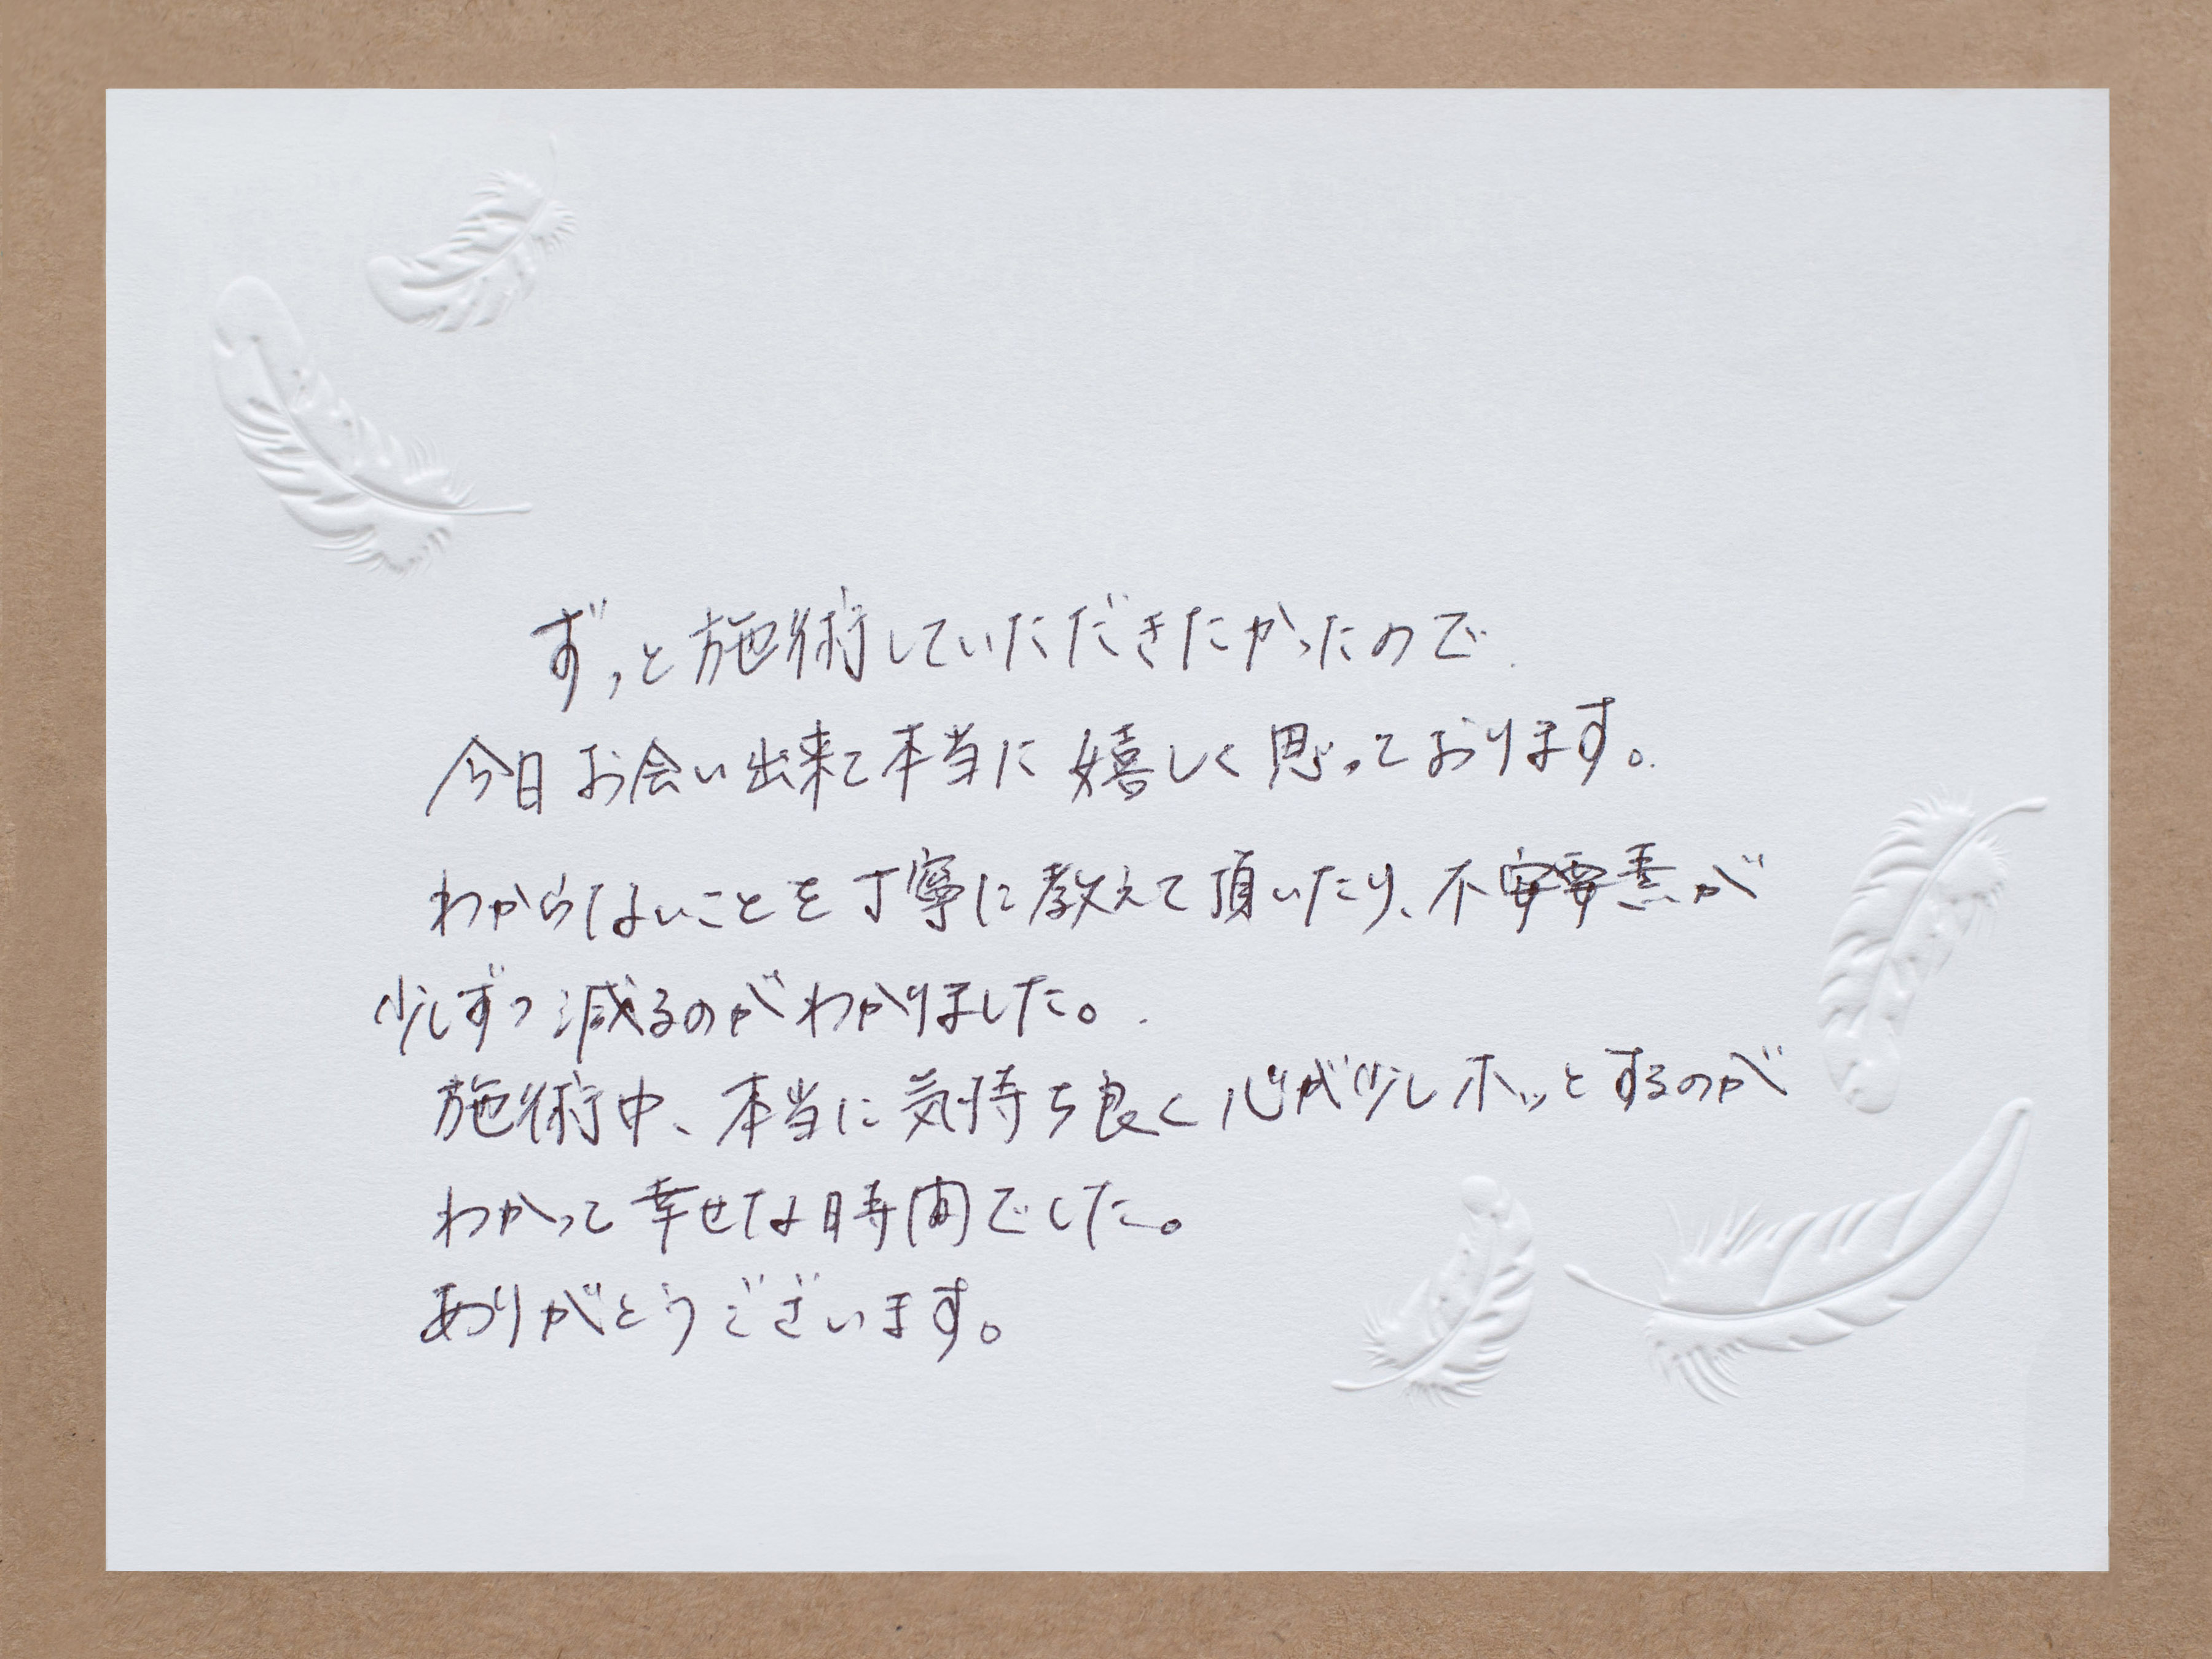 ずっと施術していただきたかったので、
今日お会い出来て本当に嬉しく思っております。
わからないことを丁寧に教えて頂いたり、不安要素が
少しずつ減るのがわかりました。
施術中、本当に気持ち良く心が少しホッとするのが
わかって幸せな時間でした。
ありがとうございます。